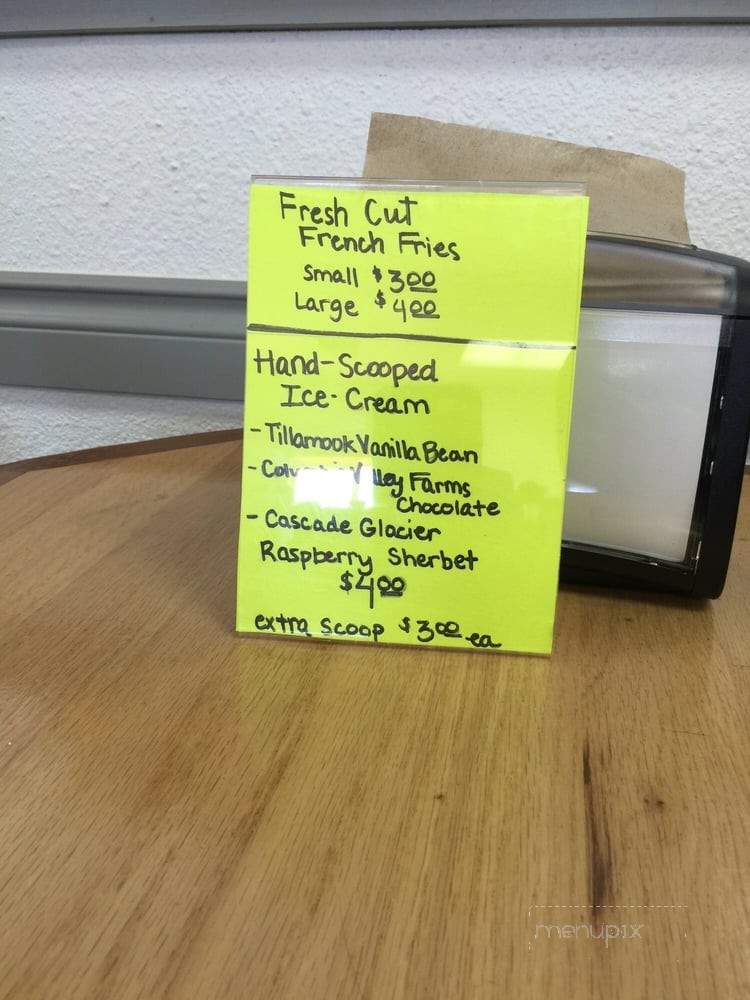 Fresh Cut
French Fries
Small $3.00
Large $4.00
Hand-Scooped
Ice-Cream
- Tillamook Vanilla Bean
- Valley Farms
Chocolate
- Cascade Glacier
Raspberry Sherbet
$4.00
extra scoop $3.00 ea
menupix